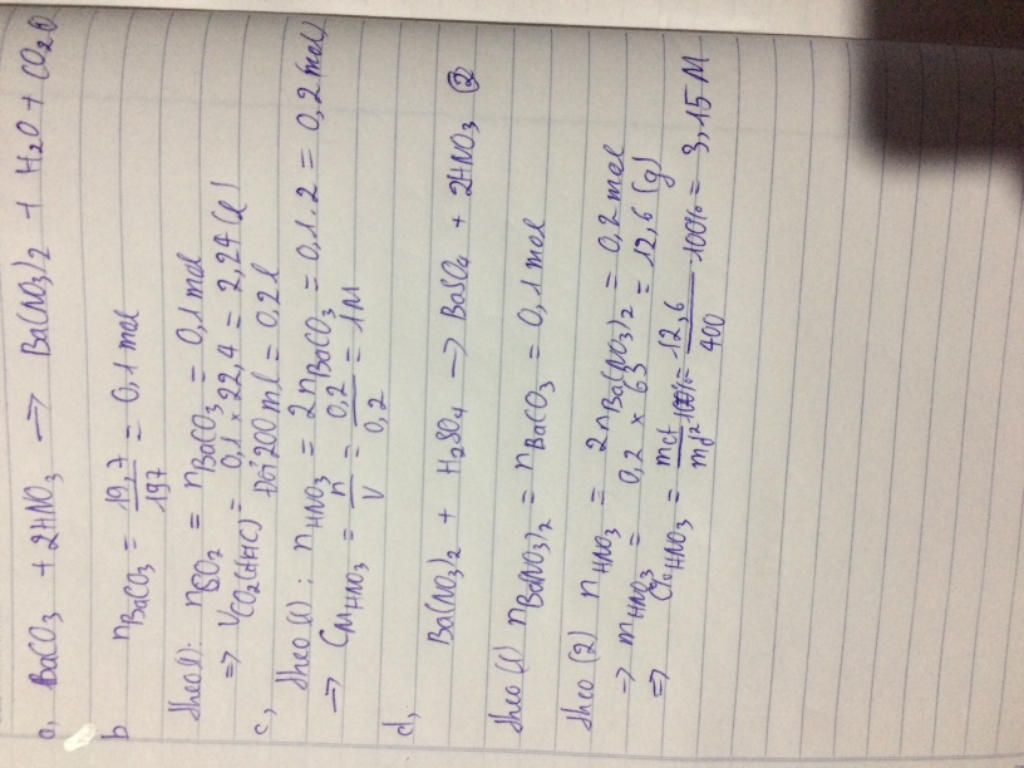 a, BaCO3 + 2HNO3 → Ba(NO3)2 + H2O + CO2 ①
b nBaCO3 = 19,7/197 = 0,1 mol
theo (1): nCO2 = nBaCO3 = 0,1 mol
⇒ VCO2(ĐKTC) = 0,1 × 22,4 = 2,24 (l)
c, Đổi 200 ml = 0,2 l
theo (1): nHNO3 = 2 nBaCO3 = 0,1.2 = 0,2 (mol)
→ CM HNO3 = n/V = 0,2/0,2 = 1M
d, Ba(NO3)2 + H2SO4 → BaSO4 + 2HNO3 ②
theo (1) nBa(NO3)2 = nBaCO3 = 0,1 mol
theo (2) nHNO3 = 2nBa(NO3)2 = 0,2 mol
→ mHNO3 = 0,2 × 63 = 12,6 (g)
⇒ C% HNO3 = mct/md² .100% = 12,6/400 .100% = 3,15 M